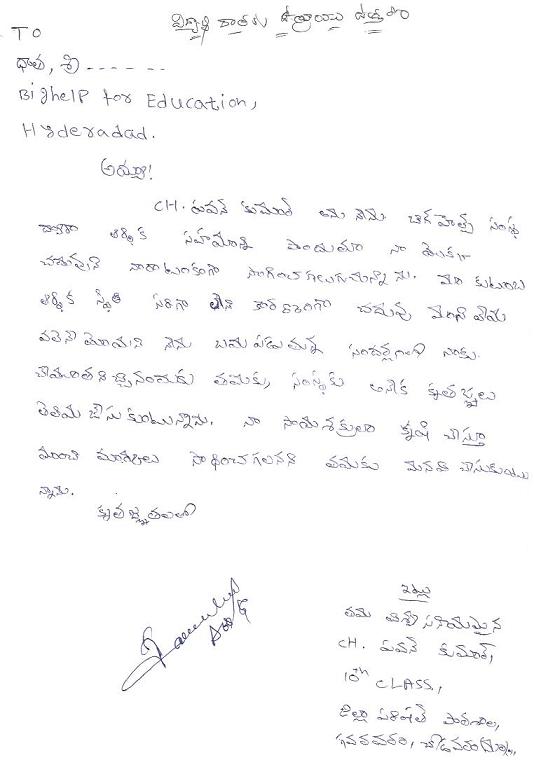 విద్యార్థి రాతను
TO
Bighelp for Education,
Hyderadad.
అయ్యా!
CH. పవన్ కుమార్ అను నేను బిగ్ హెల్ప్ సంస్థ
ద్వారా ఆర్థిక సహాయాన్ని పొందుతూ నా యొక్క
చదువుని నిరాటంకంగా సాగించగలుగుతున్నాను. మా కుటుంబ
ఆర్థిక స్థితి సరిగా లేని కారణంగా చదువు
నేను బాధపడుతున్న సందర్భంలో నాకు
తమకు, సంస్థకు అనేక కృతజ్ఞతలు
తెలియజేసుకుంటున్నాను. నా కృషి చేస్తూ
మంచి మార్కులు సాధించగలనని తమకు మనవి చేసుకుంటు
న్నాను.
కృతజ్ఞతలతో
ఇట్లు
తమ విశ్వసనీయమైన
CH. పవన్ కుమార్,
10th CLASS,
జిల్లా పరిషత్ పాఠశాల,